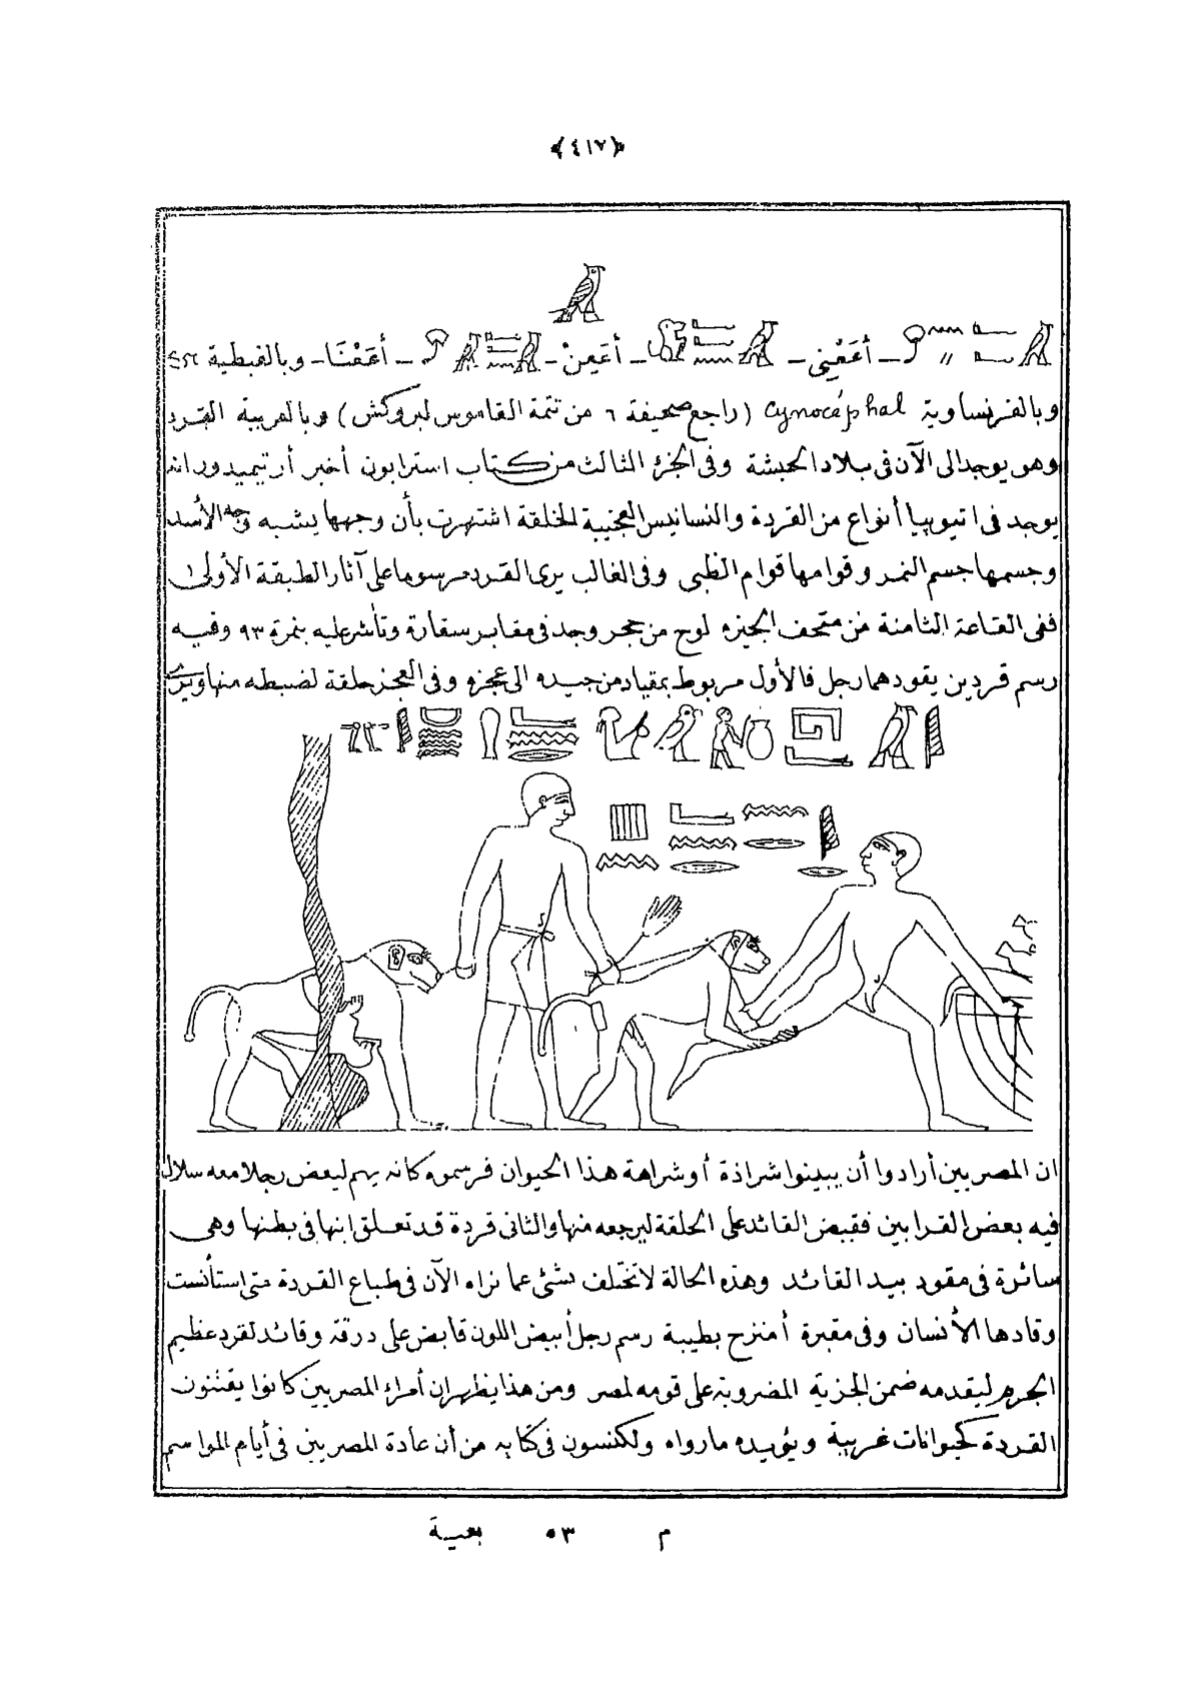 ﴿٤١٧﴾
ـ أَعَفْنِي ـ ـ أَعَعِنْ ـ ـ أَعَفْنَا ـ وبالقبطية
وبالفرنساوية Cynocéphal (راجع صحيفة ٦ من تتمة القاموس لبروكش) وبالعربية القرد
وهو يوجد الى الآن فى بلاد الحبشة وفى الجزء الثالث من كتاب استرابون أخبر أرتيميدور انه
يوجد فى اتيوپيا أنواع من القردة والنسانيس العجيبة الخلقة اشتهرت بأن وجهها يشبه وجه الأسد
وجسمها جسم النمر وقوامها قوام الظبى وفى الغالب يرى القرد مرسوما على آثار الطبقة الأولى
ففى القاعة الثامنة من متحف الجيزه لوح من حجر وجد فى مقابر سقارة وتأشر عليه بنمرة ٩٣ وفيه
رسم قردين يقودهما رجل فالأول مربوط بمقياد من جيده الى عجزه وفى العجز حلقة لضبطه منها ويرى
ان المصريين أرادوا أن يبينوا شراذة أو شراهة هذا الحيوان فرسموه كانه يهم ليعض رجلا معه سلال
فيه بعض القرابين فقبض القائد على الحلقة ليرجعه منها والثانى قردة قد تعلق ابنها فى بطنها وهى
سائرة فى مقود بيد القائد وهذه الحالة لا تختلف بشئ عما نراه الآن فى طباع القردة متى استأنست
وقادها الأنسان وفى مقبرة أمنزح بطيبة رسم رجل أبيض اللون قابض على درقة وقائد لقرد عظيم
الجرم ليقدمه ضمن الجزية المضروبة على قومه لمصر ومن هذا يظهر ان أمراء المصريين كانوا يقتنون
القردة كحيوانات غريبة ويؤيده مارواه ولكنسون فى كتابه من أن عادة المصريين فى أيام المواسم
م ٥٣ بغية